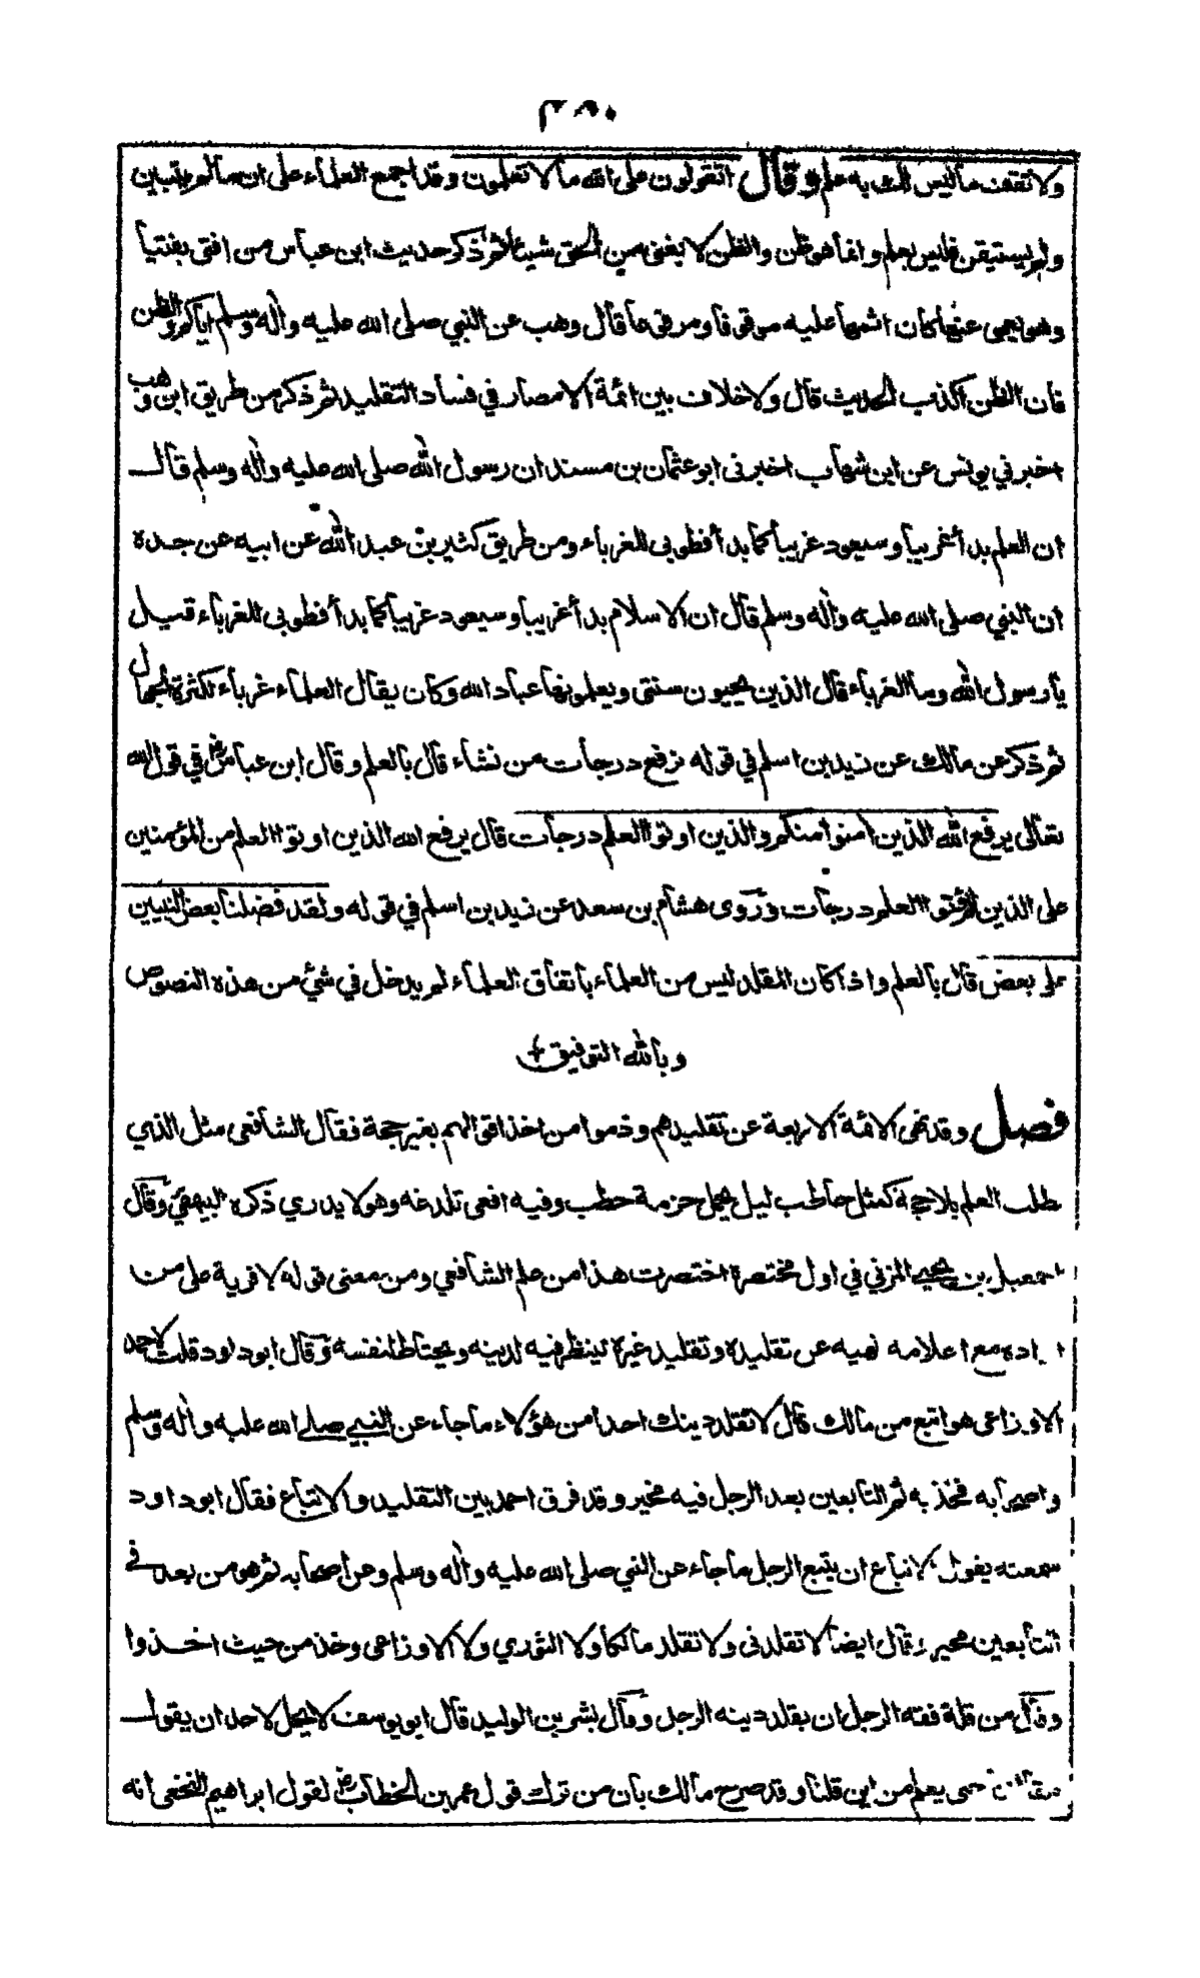 ٣٨٠
ولا تقف ما ليس لك به علم وقال اتقولون على الله ما لا تعلمون وقد اجمع العلماء على ان ما لم يتبين
ولم يستيقن فليس بعلم وانما هو ظن والظن لا يغنى من الحق شيئا ثم ذكر حديث ابن عباس من افتى بفتيا
وهو يعمى عنها كان اثمها عليه موقوفا ومرفوعا قال وهب عن النبي صلى الله عليه وآله وسلم اياكم والظن
فان الظن اكذب الحديث قال ولا خلاف بين ائمة الامصار في فساد التقليد ثم ذكر من طريق ابن وهب
اخبرني يونس عن ابن شهاب اخبرنى ابو عثمان بن مسند ان رسول الله صلى الله عليه وآله وسلم قال
ان العلم بدأ غريبا وسيعود غريبا كما بدأ فطوبى للغرباء ومن طريق كثير بن عبد الله عن ابيه عن جده
ان النبي صلى الله عليه وآله وسلم قال ان الاسلام بدأ غريبا وسيعود غريبا كما بدأ فطوبى للغرباء قيل
يا رسول الله وما الغرباء قال الذين يحيون سنتى ويعلمونها عباد الله وكان يقال العلماء غرباء لكثرة الجهال
ثم ذكر عن مالك عن زيد بن اسلم في قوله نرفع درجات من نشاء قال بالعلم وقال ابن عباس رض في قول الله
تعالى يرفع الله الذين امنوا منكم والذين اوتوا العلم درجات قال يرفع الله الذين اوتوا العلم من المؤمنين
على الذين لم يؤتوا العلم درجات وروى هشام بن سعد عن زيد بن اسلم في قوله ولقد فضلنا بعض النبيين
على بعض قال بالعلم واذا كان المقلد ليس من العلماء باتفاق العلماء لم يدخل في شئ من هذه النصوص
وبالله التوفيق
فصل وقد نهى الائمة الاربعة عن تقليدهم وذموا من اخذ اقوالهم بغير حجة فقال الشافعى مثل الذي
يطلب العلم بلا حجة كمثل حاطب ليل يحمل حزمة حطب وفيه افعى تلدغه وهو لا يدري ذكره البيهقي وقال
اسمعيل بن يحيى المزني في اول مختصره اختصرت هذا من علم الشافعي ومن معنى قوله لاقربه على من
اراده مع اعلامه نهيه عن تقليده وتقليد غيره لينظر فيه لدينه ويحتاط لنفسه وقال ابو داود قلت لاحمد
الاوزاعى هو اتبع من مالك قال لا تقلد دينك احدا من هؤلاء ما جاء عن النبي صلى الله عليه وآله وسلم
واصحابه فخذ به ثم التابعين بعد الرجل فيه مخير وقد فرق احمد بين التقليد والاتباع فقال ابو داود
سمعته يقول الاتباع ان يتبع الرجل ما جاء عن النبي صلى الله عليه وآله وسلم وعن اصحابه ثم هو من بعد في
التابعين مخير وقال ايضا لا تقلدنى ولا تقلد مالكا ولا الثوري ولا الاوزاعى وخذ من حيث اخذوا
وقال من قلة فقه الرجل ان يقلد دينه الرجل وقال بشر بن الوليد قال ابو يوسف لا يحل لاحد ان يقول
مقالتنا حتى يعلم من اين قلنا وقد صرح مالك بان من ترك قول عمر بن الخطاب رض لقول ابراهيم النخعى انه